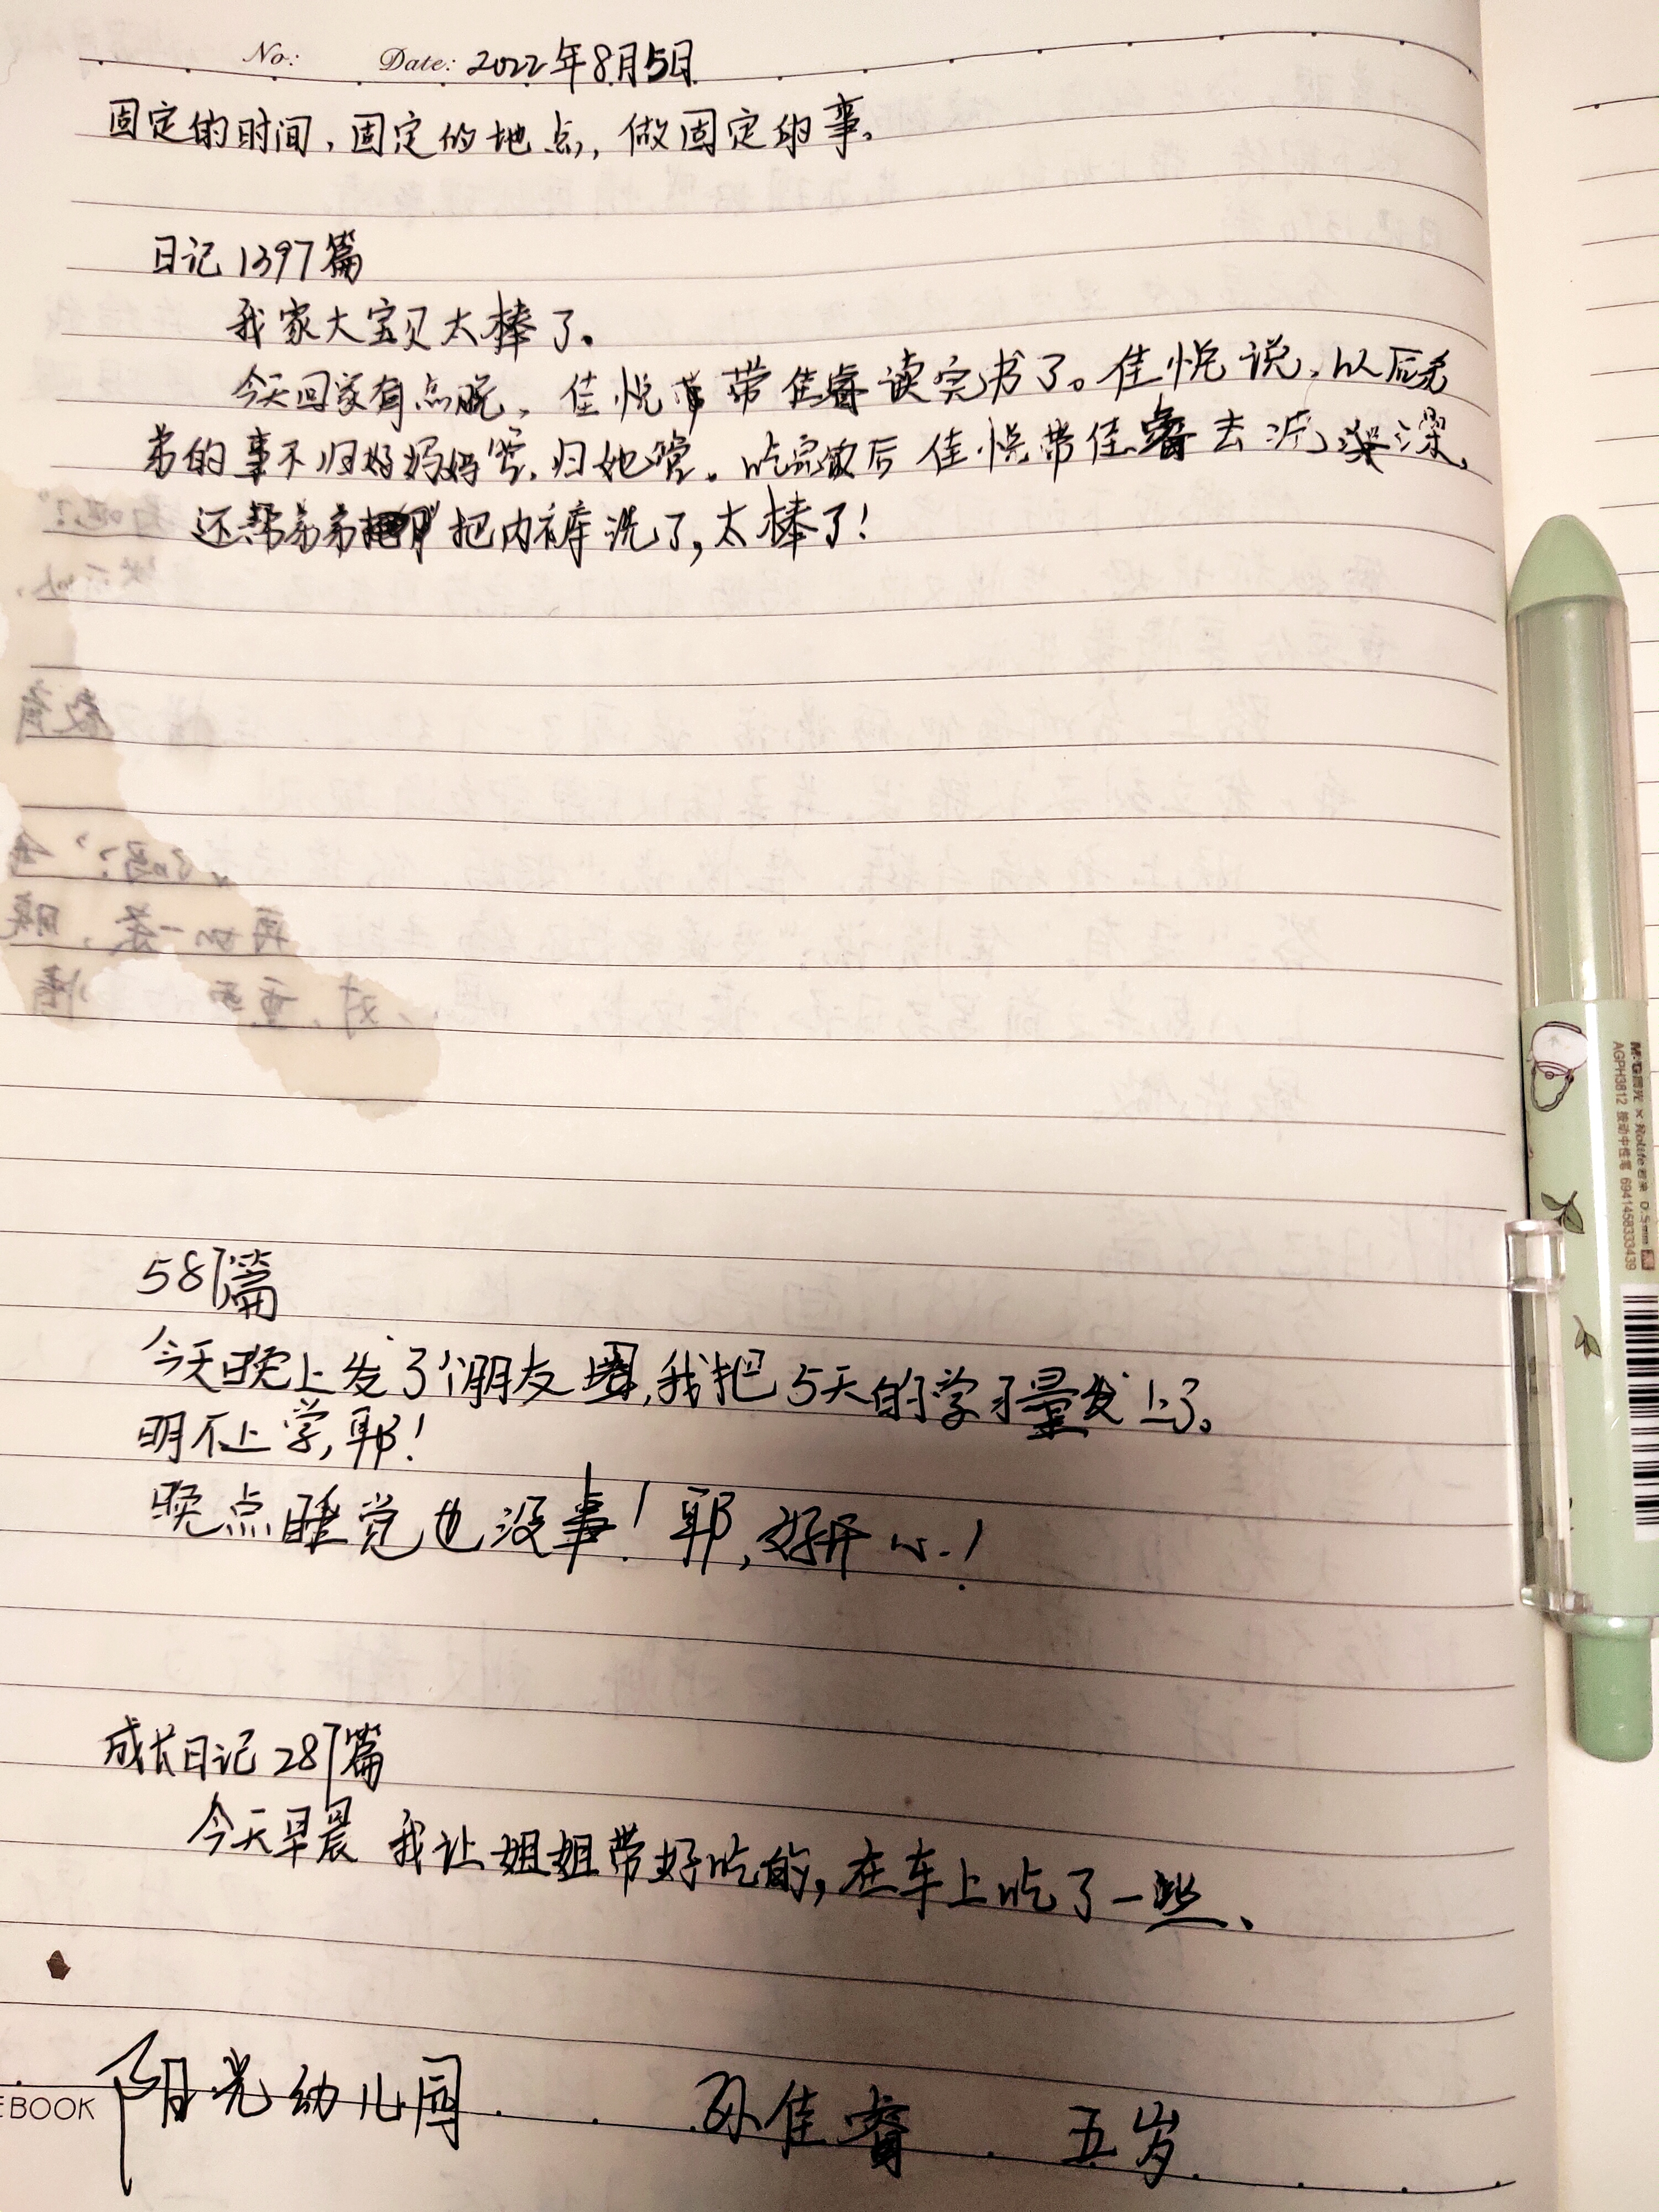 No: Date: 2022年8月5日
固定的时间,固定的地点,做固定的事。
日记1397篇
我家大宝贝太棒了。
今天回家有点晚,佳悦带佳睿读完书了。佳悦说,以后弟
弟的事不归好妈妈管,归她管。吃完饭后佳悦带佳睿去洗澡,
还帮弟弟把内裤洗了,太棒了!
587篇
今天晚上发了个朋友圈,我把5天的学习量发上了。
明不上学,耶!
晚点睡觉也没事!耶,好开心!
成长日记287篇
今天早晨 我让姐姐带好吃的,在车上吃了一些、
阳光幼儿园 孙佳睿 五岁
EBOOK
M&G晨光 × Nolife若来 0.5mm
AGPH3812 按动中性笔 6941458333439